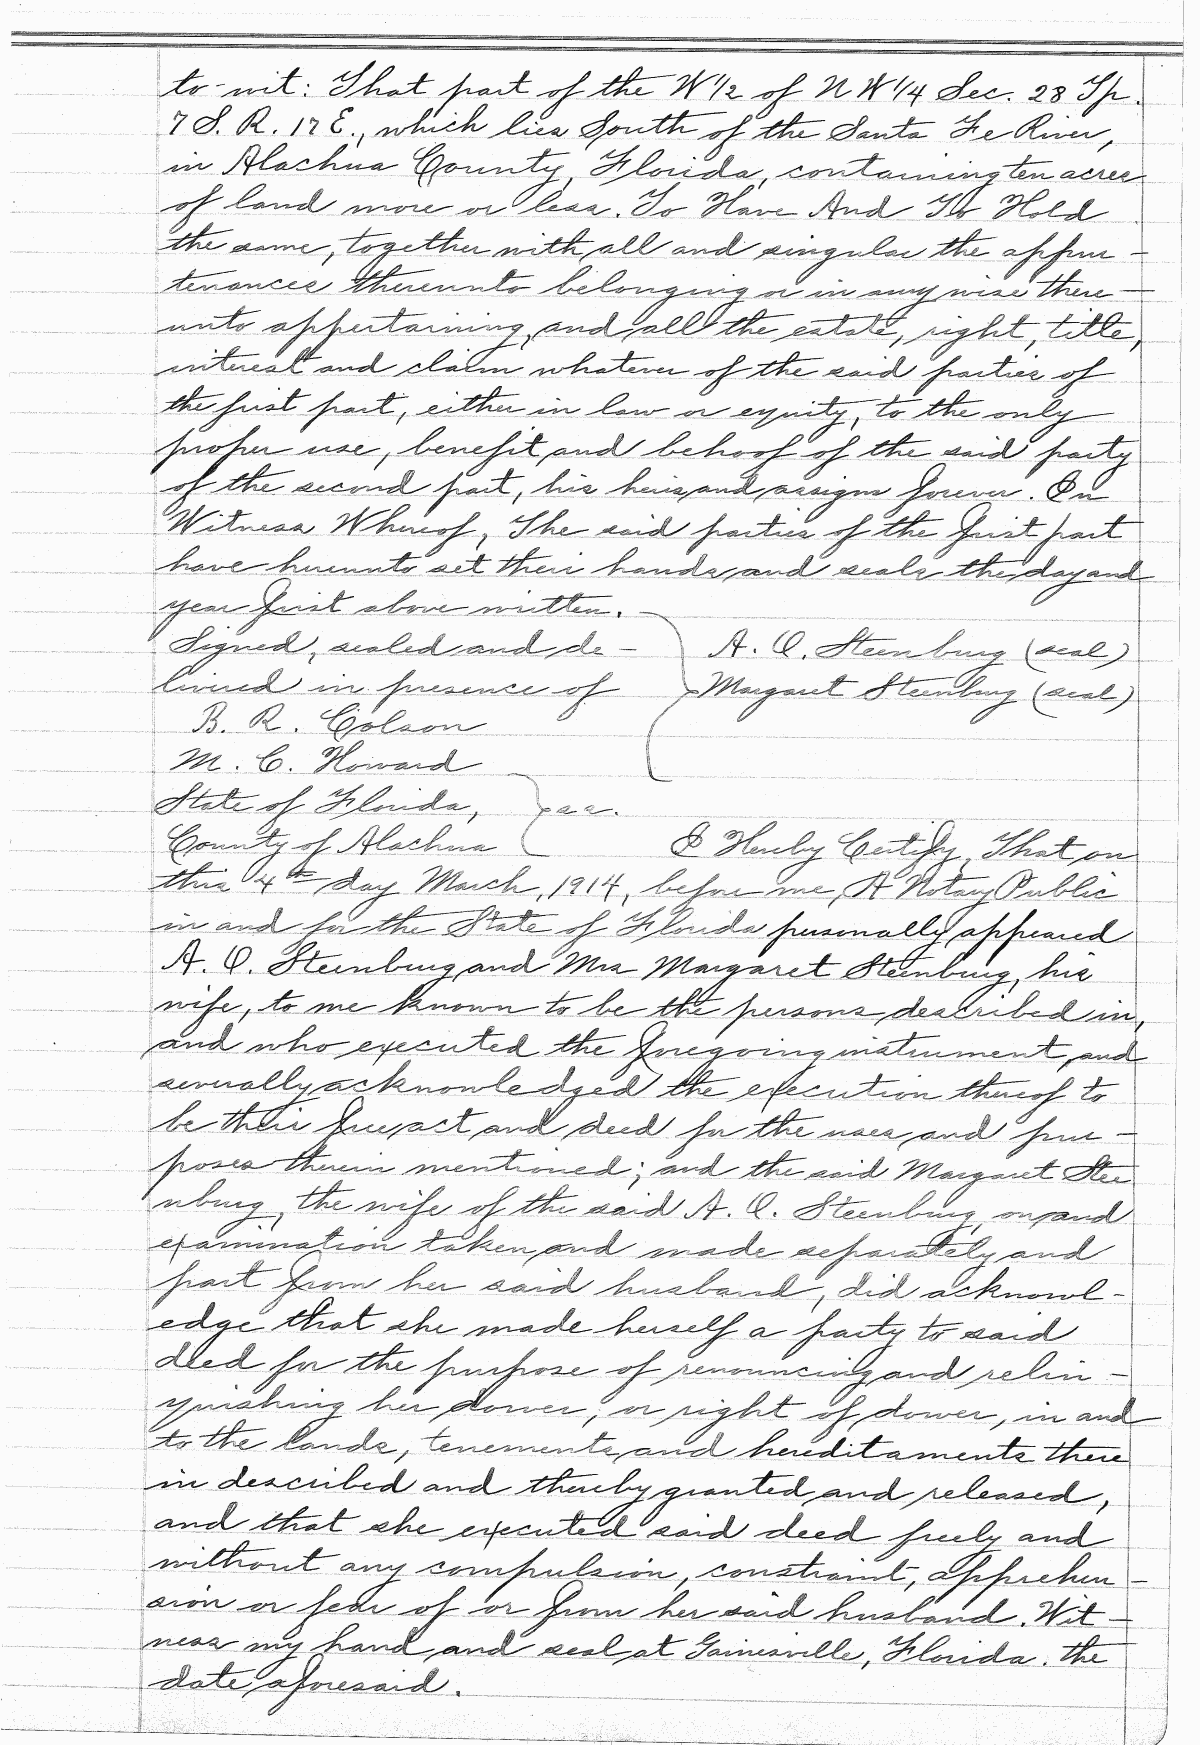 to-wit: That part of the W 1/2 of N W 1/4 Sec. 28 Tp.
7 S. R. 17 E., which lies South of the Santa Fe River,
in Alachua County, Florida, containing ten acres
of land more or less. To Have And To Hold
the same, together with all and singular the appur-
tenances thereunto belonging or in any wise there-
unto appertaining, and all the estate, right, title,
interest and claim whatever of the said parties of
the first part, either in law or equity, to the only
proper use, benefit and behoof of the said party
of the second part, his heirs and assigns forever. In
Witness Whereof, The said parties of the first part
have hereunto set their hands and seals the day and
year first above written.
Signed, sealed and de- A. O. Steenburg (seal)
livered in presence of Margaret Steenburg (seal)
B. R. Colson
M. C. Howard
State of Florida, } ss.
County of Alachua I Hereby Certify, That on
this 4th day March, 1914, before me, A Notary Public
in and for the State of Florida personally appeared
A. O. Steenburg and Mrs Margaret Steenburg, his
wife, to me known to be the persons described in,
and who executed the foregoing instrument, and
severally acknowledged the execution thereof to
be their free act and deed for the uses and pur-
poses therein mentioned; and the said Margaret Stee
nburg, the wife of the said A. O. Steenburg, on and
examination taken and made separately and
part from her said husband, did acknowl-
edge that she made herself a party to said
deed for the purpose of renouncing and relin-
quishing her dower, or right of dower, in and
to the lands, tenements and hereditaments there
in described and thereby granted and released,
and that she executed said deed freely and
without any compulsion, constraint, apprehen-
sion or fear of or from her said husband. Wit-
ness my hand and seal at Gainesville, Florida. the
date aforesaid.